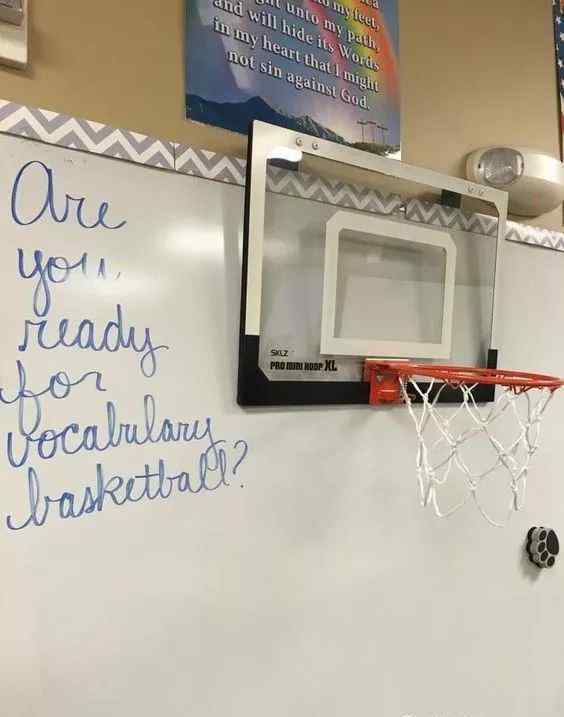 my feet,
unto my path,
and will hide its Words
in my heart that I might
not sin against God.
Are
you
ready
for
vocabulary
basketball?
SKLZ
PRO MINI HOOP XL